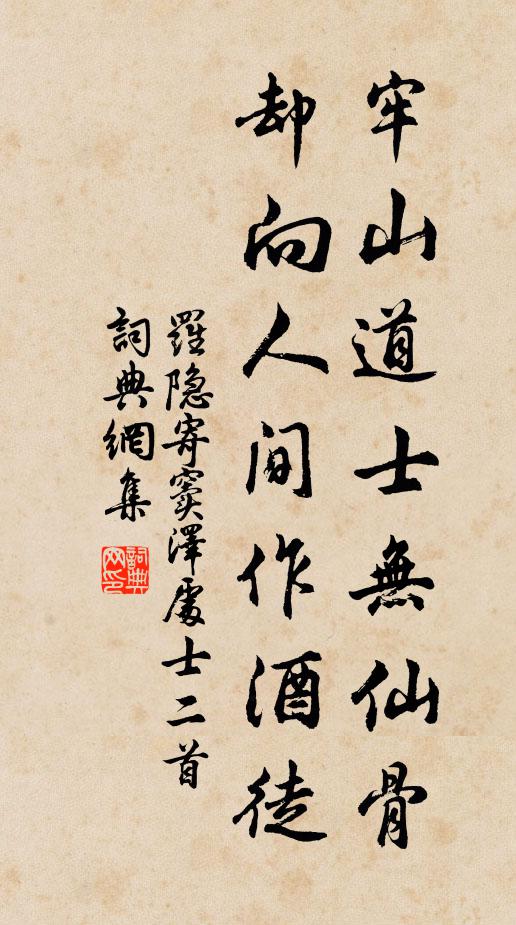 牢山道士無仙骨
却向人間作酒徒
羅隐寄竇澤處士二首
詞典網集
詞典
网印